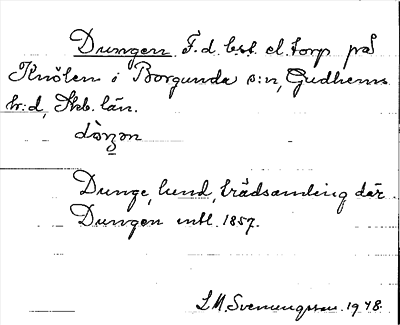 Dungen. F.d. bst. el. torp på
Knölen i Borgunda s:n, Gudhems
h:d, Skb. län.
Dunge, lund, trädsamling där
Dungen enl. 1857.
S.M. Svenungsson. 1978.